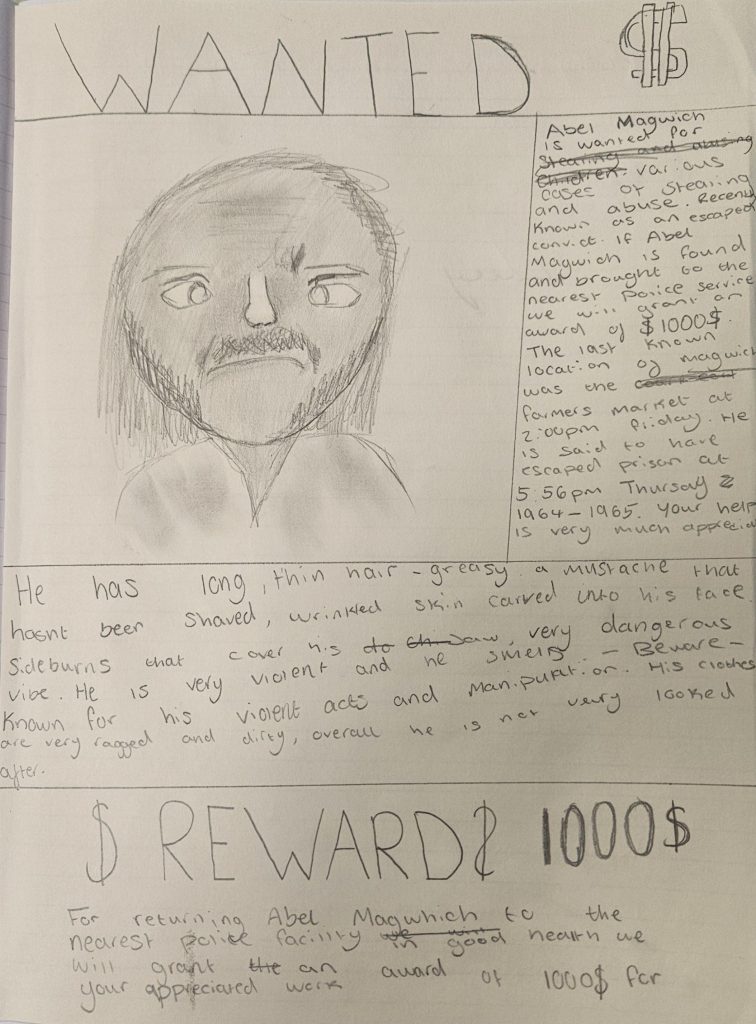 WANTED $
Abel Magwich
is wanted for
Stealing and abusing
Children. various
cases of stealing
and abuse. Recenly
known as an escaped
convict. If Abel
Magwich is found
and brought to the
nearest police service
we will grant an
award of $1000$.
The last known
location of magwich
was the
farmers market at
2:00pm friday. He
is said to have
escaped prison at
5:56pm Thursday
1964-1965. Your help
is very much apprecia
He has long, thin hair - greasy. a mustache that
hasnt been shaved, wrinkled skin carved into his face.
Sideburns that cover his jaw, very dangerous
vibe. He is very violent and he smells - Beware -
Known for his violent acts and manipulation. His clothes
are very ragged and dirty, overall he is not very looked
after.
$ REWARD $ 1000$
For returning Abel Magwhich to the
nearest police facility we will in good health we
will grant the an award of 1000$ for
your appreciated work